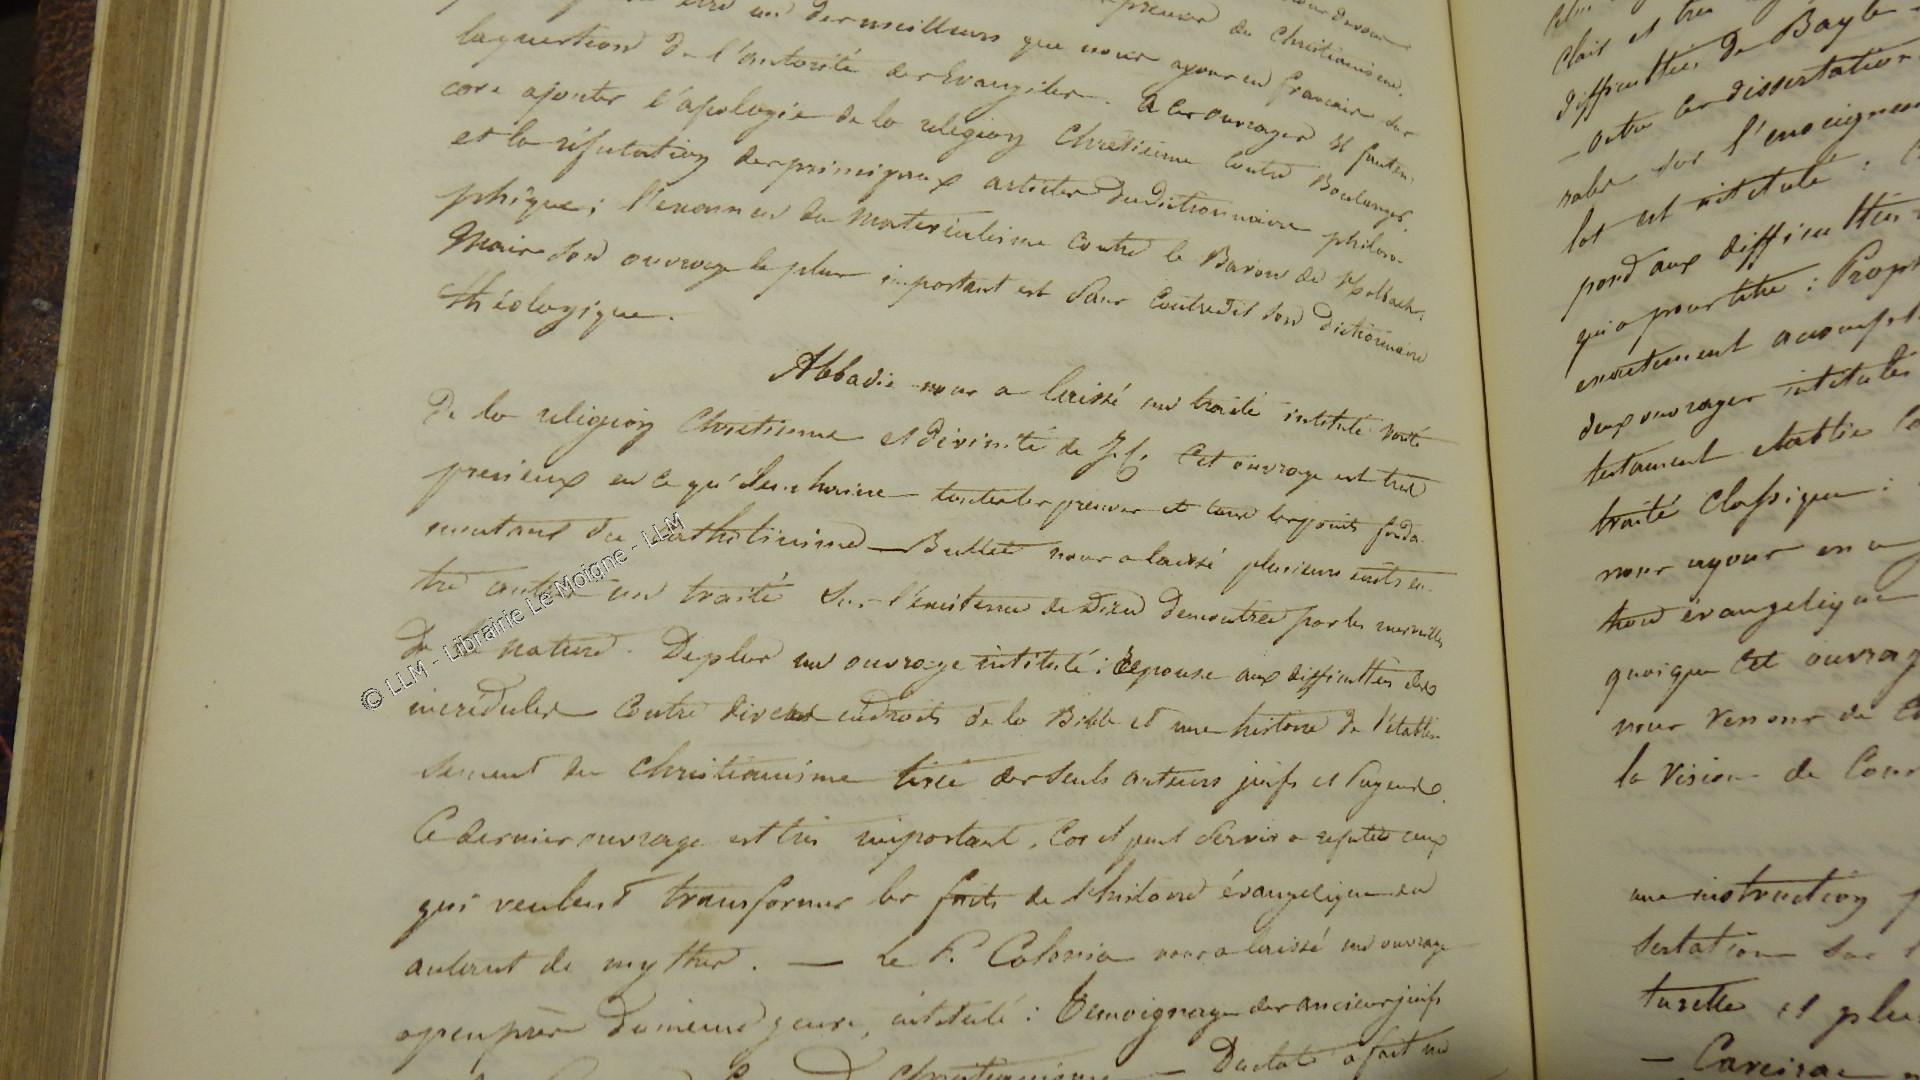 du Christianisme,
être un des meilleurs que nous ayons en français sur
la question de l'autorité des Evangiles. A ces ouvrages il faut en-
core ajouter l'apologie de la religion Chrétienne contre Boulanger,
et la réfutation des principaux articles du dictionnaire philoso-
phique; l'examen du matérialisme contre le Baron de Holbach.
Mais son ouvrage le plus important est sans contredit son dictionnaire
théologique.
Abbadie nous a laissé un traité intitulé vérité
De la religion Chrétienne et divinité de J.C. Cet ouvrage est très
précieux en ce qu' toutes les preuves et tous les points fonda-
mentaux du catholicisme — Bullet nous a laissé plusieurs écrits en-
tre autres un traité sur l'existence de Dieu démontrée par les merveilles
De la nature. De plus un ouvrage intitulé : Réponse aux difficultés des
incrédules contre divers endroits de la Bible et une histoire de l'établis-
sement du Christianisme tirée des seuls auteurs juifs et Payens.
Ce dernier ouvrage est très important, Car il peut servir a réfuter ceux
qui veulent transformer les faits de l'histoire évangelique en
autant de mythes. — Le P. Colonia nous a laissé un ouvrage
apeuprès du même genre, intitulé : Témoignage des anciens juifs
Christianisme — a fait un
clair et très
difficultés de Bayle
— outre les dissertations
sur l'enseignem
lot est intitulé :
pond aux difficultés
qui a pour titre : Proph
exactement accompl
deux ouvrages intitulés
testament établie
traité Classique :
nous ayons en
évangelique
quoique Cet ouvrag
nous venons de
la vision de
une instruction
sertation sur
turelle et plu
© LLM - Librairie Le Moigne - LLM